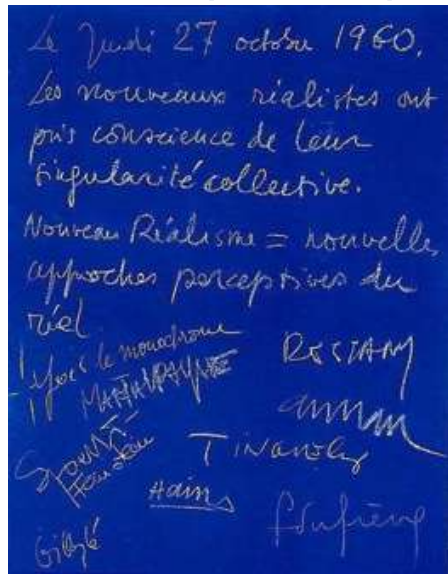 Le Jeudi 27 octobre 1960.
Les nouveaux réalistes ont
pris conscience de leur
singularité collective.
Nouveau Réalisme = nouvelles
approches perceptives du
réel
Yves le monochrome
RESTANY
MARTIAL RAYSSE
arman
SPOERRI
TINGUELY
Hains
dufrêne
Villeglé